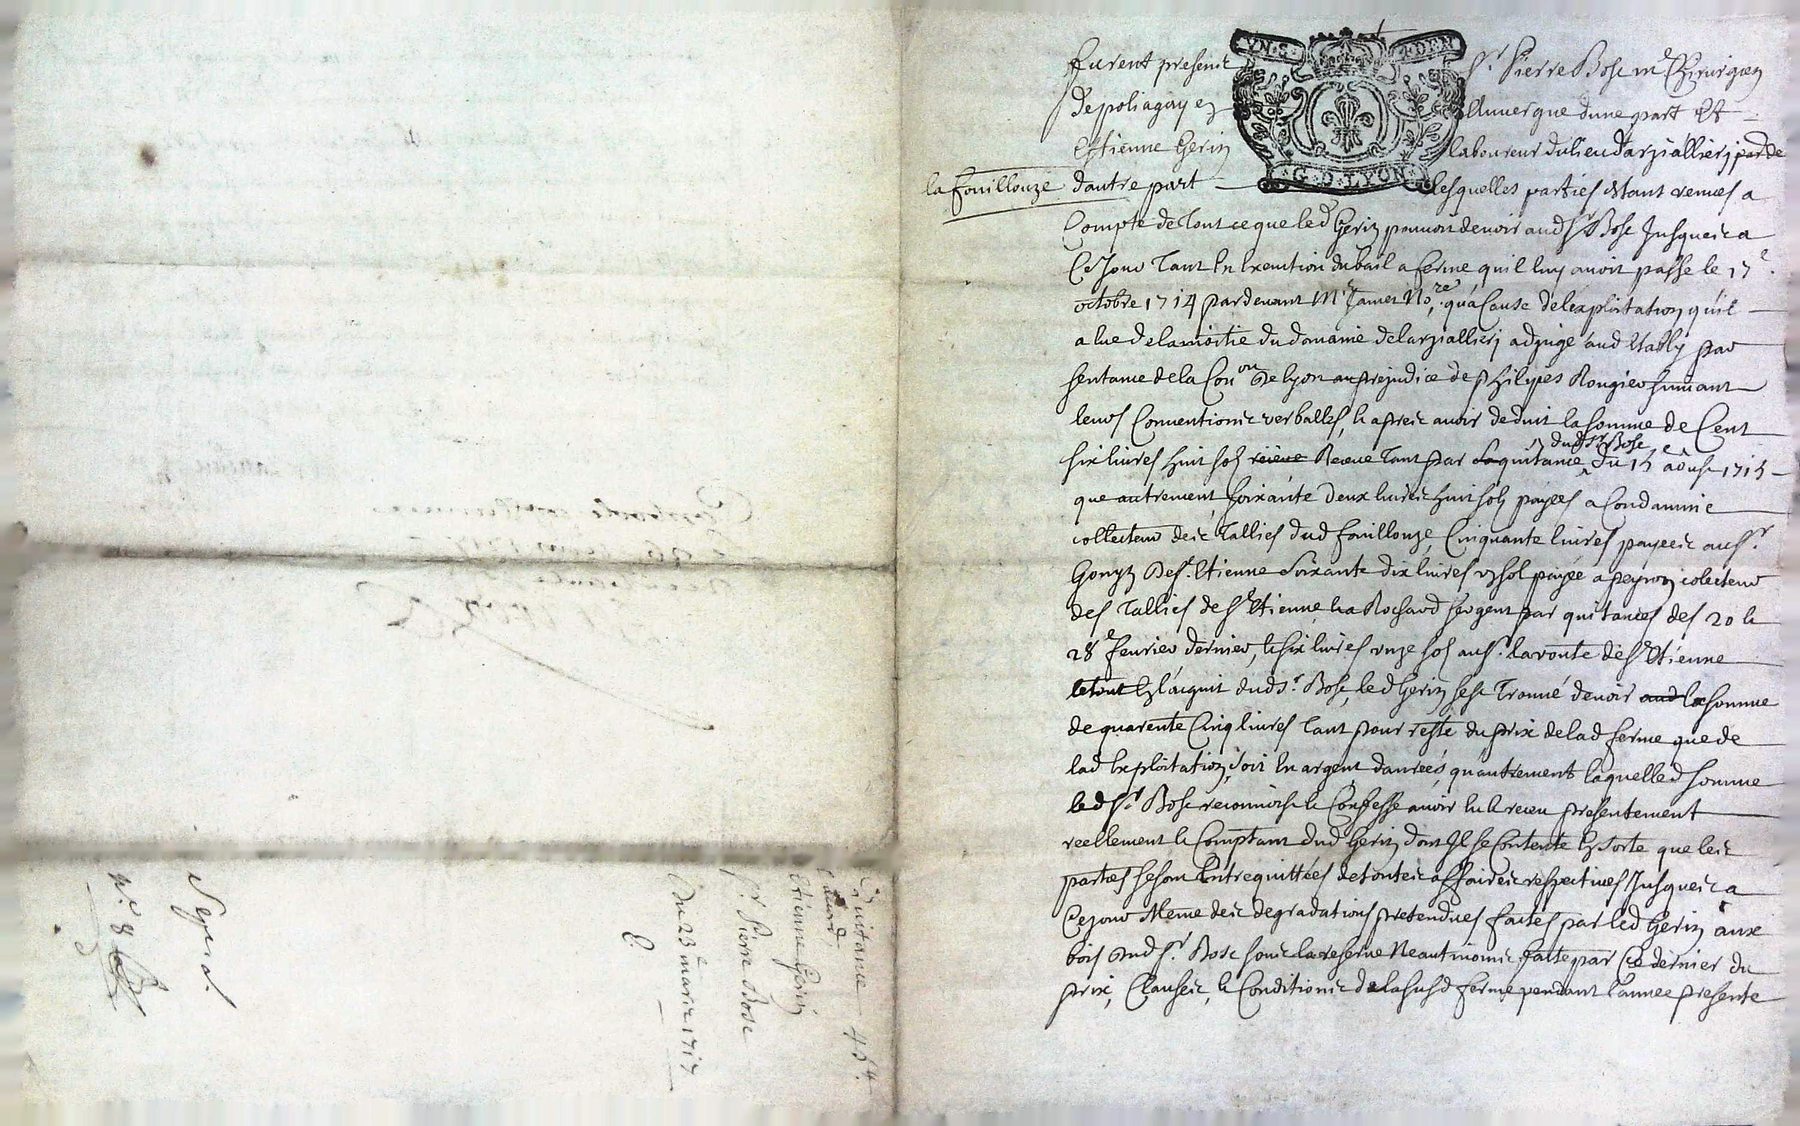 VN·S· ·DEN
furent presents Sr. Pierre Bosc me Chirurgien
de poliagay en Auvergne d'une part Et
Estienne Gerin laboureur du lieu d'arziallierz parde
la fouillouze d'autre part lesquelles parties Estant venues a
·G·D·LYON·
Compte de tout ce que led Gerin pouvoit devoir aud Sr Bosc Jusques a
Ce Jour tant En Execution du bail a ferme qu'il luy avoit passé le 17e.
octobre 1714 pardevant Me Jamet Nore. qu'a Cause de l'exploitation qu'il
a Eue de la moitie du domaine de larziallierz adjugé aud Estably par
sentance de la Conon de lyon au prejudice de philipes Rougier suivant
leurs Conventions verballes, Et apres avoir deduit la somme de Cent
six livres huit sols receue Receue tant par sa quitance dud Sr Bosc du 15 aôust 1715
que autrement, soixante deux livres huit sols payées a Condamine
collecteur des Tallies dud fouillouze, Cinquante livres payees au Sr.
Gonyn de St. Etienne Soixante dix livres un sol payée a peyron colecteur
des Tallies de St Etienne Et a Rochard sergent par quitances des 20 Et
28e fevrier dernier, Et six livres onze sols au Sr. laroute de St Etienne
le tout En l'acquit dud Sr. Bosc, led Gerin s'est trouvé devoir aud la somme
de quarente Cinq livres tant pour reste du prix de lad ferme que de
lad Exploitation, soit En argent danrées qu'autrement laquelle d somme
led Sr. Bosc reconnoist Et Confesse avoir Eu Et receu presentement
reellement Et Comptant dud Gerin dont Il se Contente En sorte que les
parties se sont Entrequittées de toutes affaires respectives Jusques a
Ce jour Meme des degradations pretendues faites par led Gerin aux
bois dud Sr. Bosc sous la reserve Neantmoins faite par Ce dernier du
prix, Clauses, Et Conditions de la susd ferme pendant l'année presente
Quitance 45ᵗᵗ.
Etienne Gerin
Sr. Pierre Bosc
Du 23e mars 1717
E
No. 8